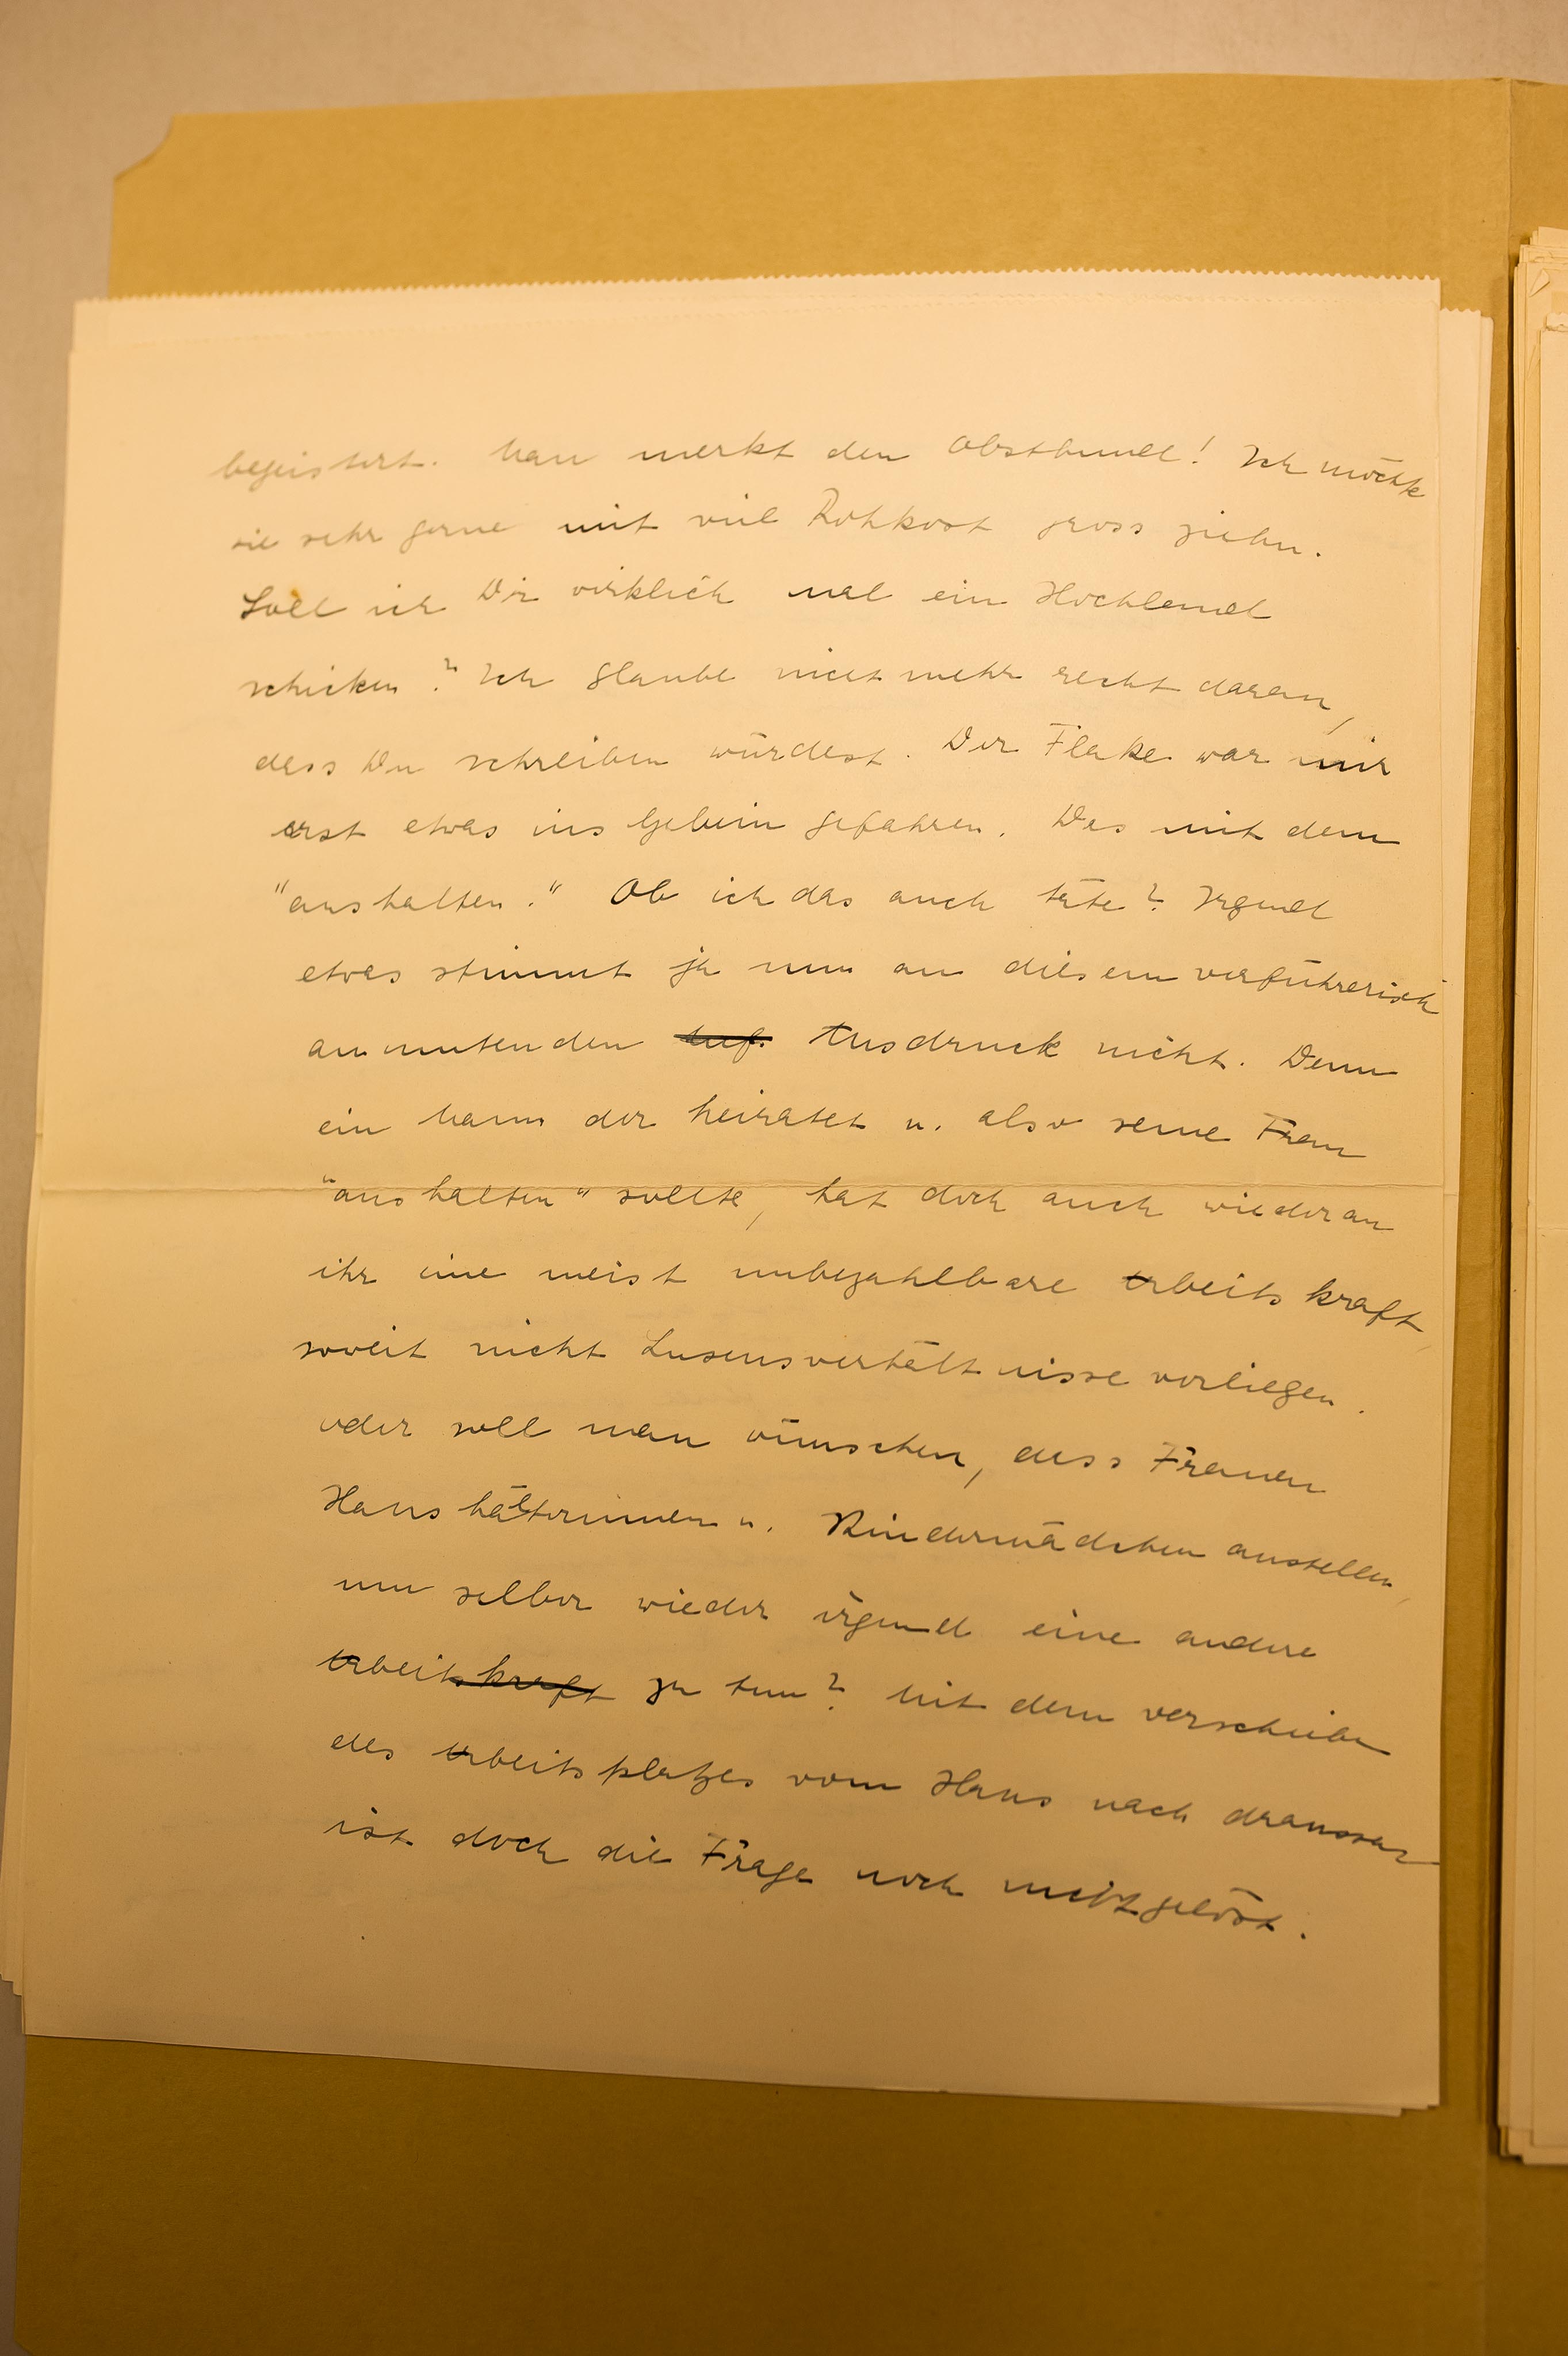 begeistert. Man merkt den Obsthunel! Ich möchte
sie sehr gerne mit viel Rohkost gross ziehn.
Soll ich Dir wirklich mal ein Hochland
schicken? Ich glaube nicht mehr recht daran,
dass Du schreiben würdest. Der Flake war mir
erst etwas ins Gebein gefahren. Das mit dem
"aushalten." Ob ich das auch täte? Irgend
etwas stimmt ja nun an diesem verführerisch
anmutenden Auf. Ausdruck nicht. Denn
ein Mann der heiratet u. also seine Frau
"aushalten" sollte, hat doch auch wieder an
ihr eine meist unbezahlbare Arbeitskraft
soweit nicht Luxusverhältnisse vorliegen.
oder soll man wünschen, dass Frauen
Haushälterinnen u. Kindermädchen anstellen,
um selber wieder irgend eine andere
Arbeitskraft zu tun? Mit dem verschieben
des Arbeitsplatzes vom Haus nach draussen
ist doch die Frage noch nicht gelöst.